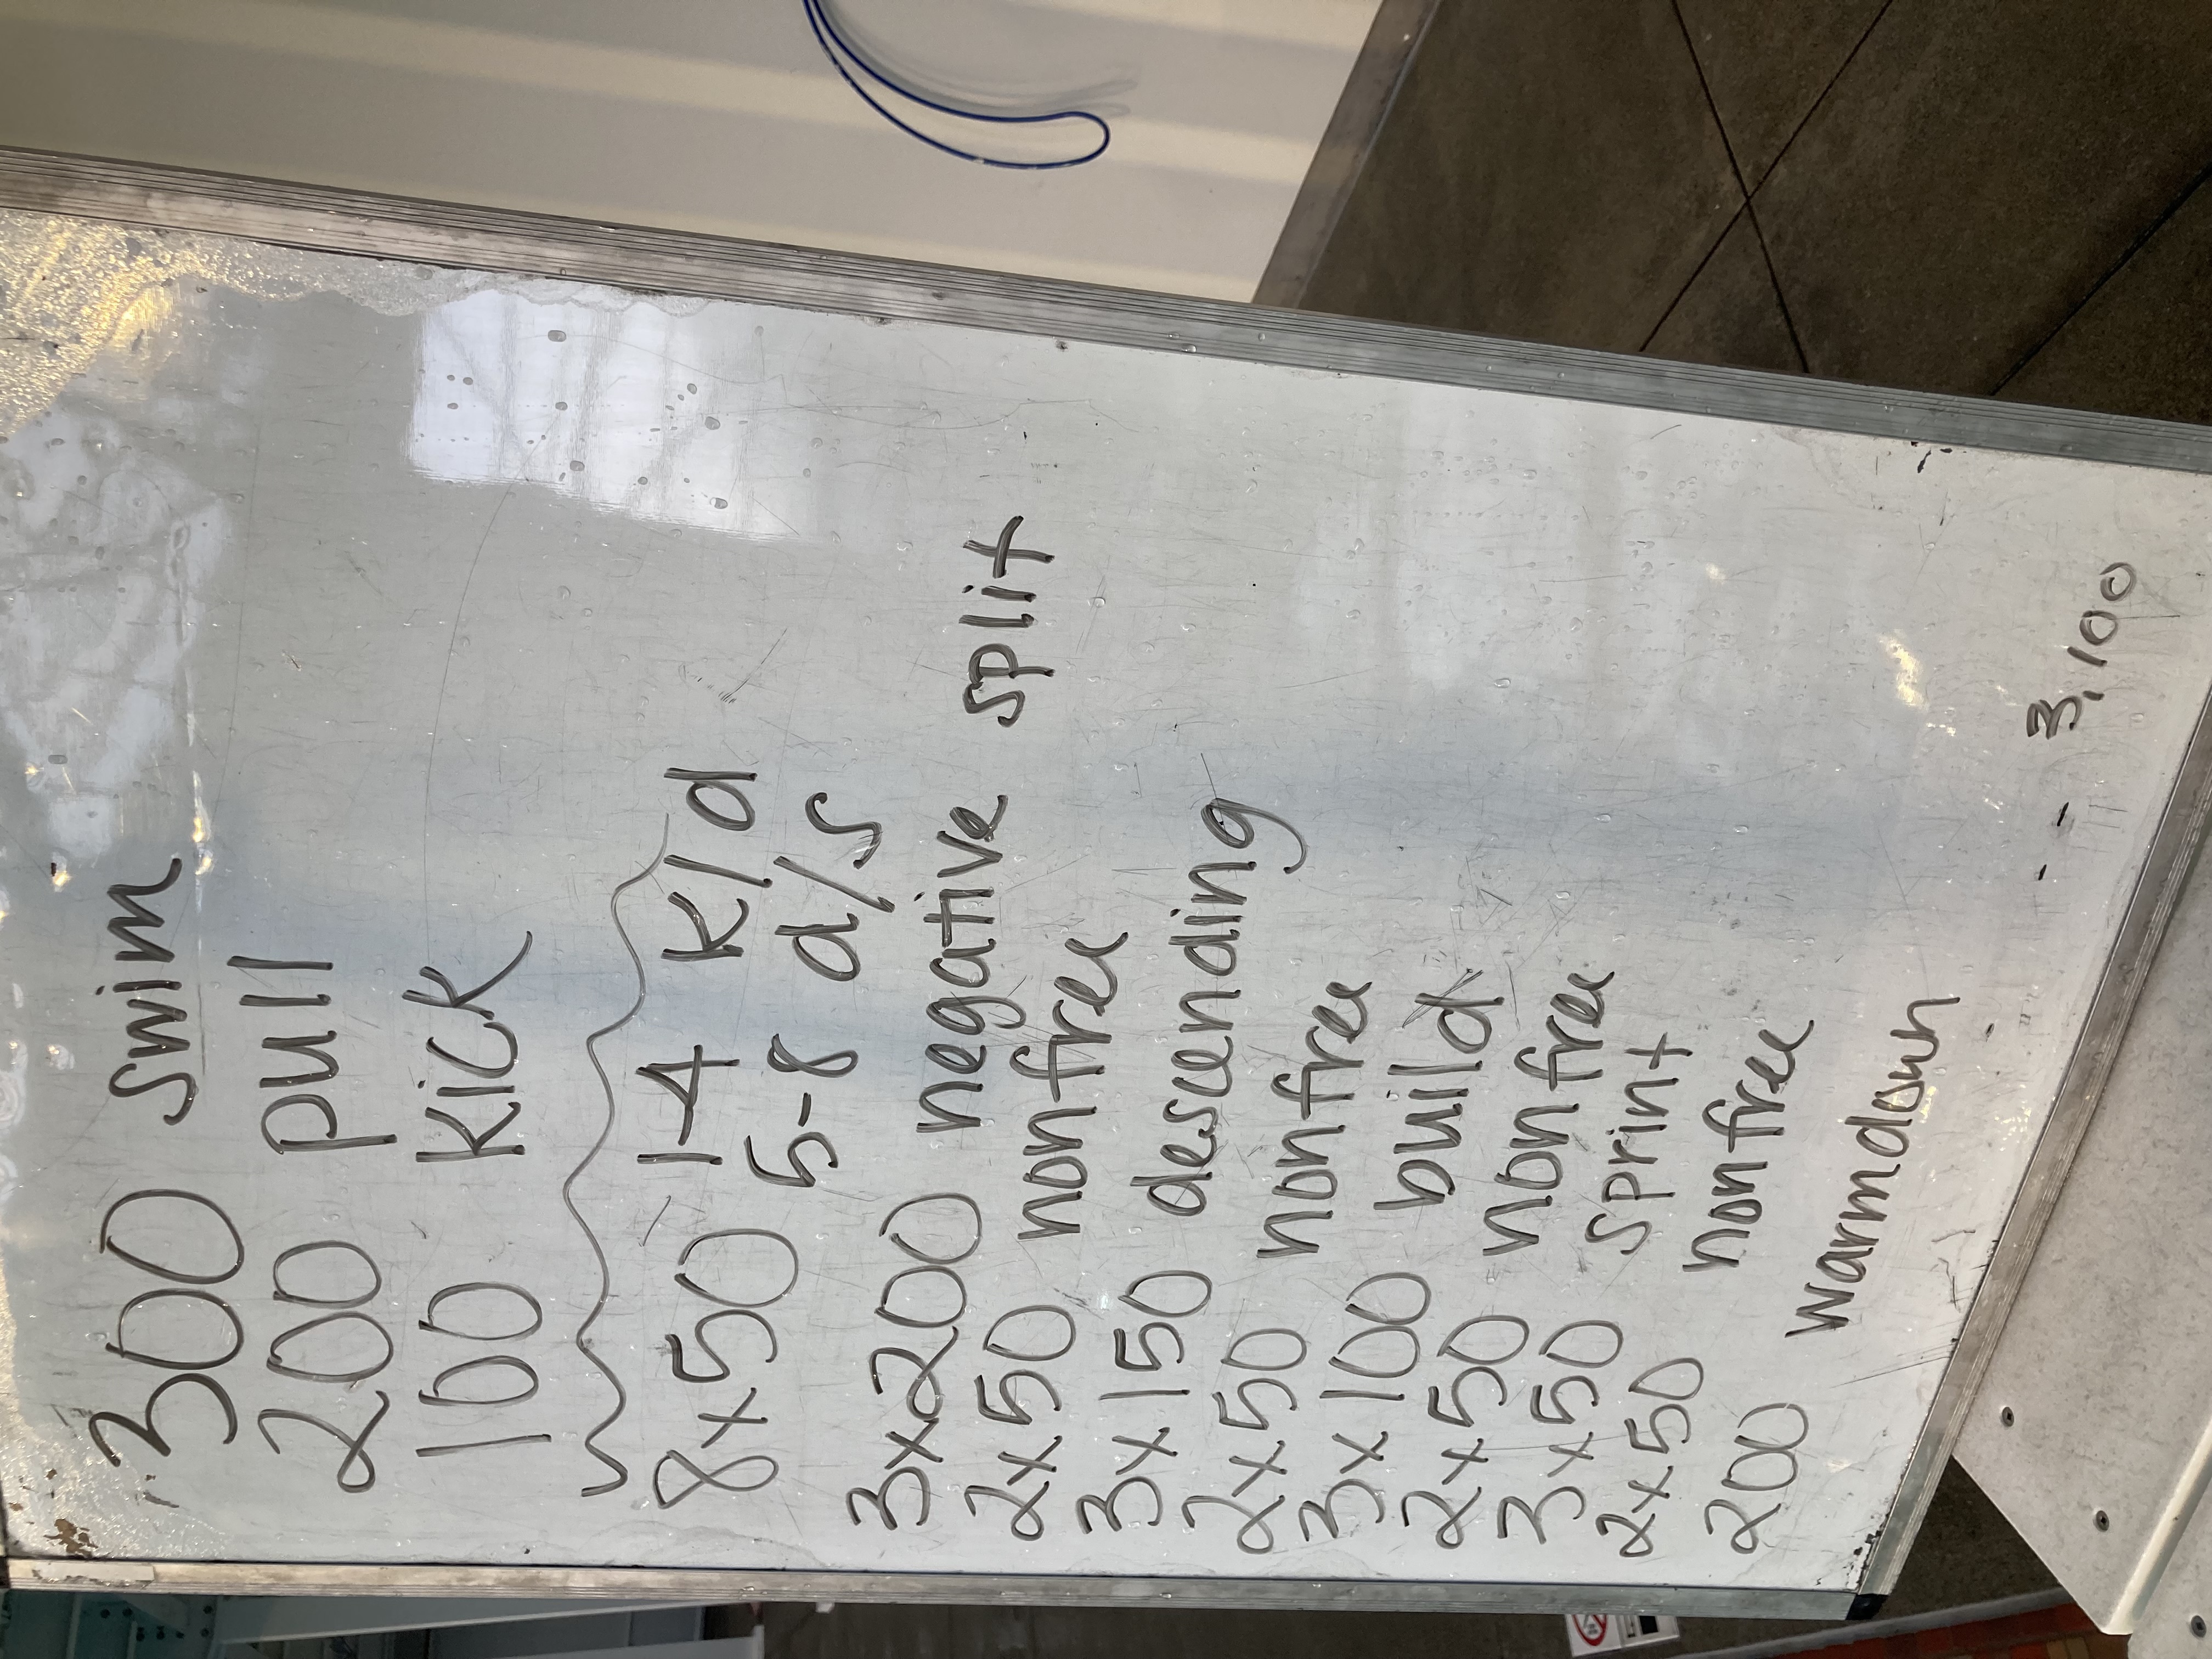 300 swim
200 pull
100 kick
8x50 1-4 K/d
5-8 d/s
3x200 negative split
2x50 nonfree
3x150 descending
2x50 nonfree
3x100 build
2x50 nonfree
3x50 sprint
2x50 nonfree
200 warmdown
-- 3,100